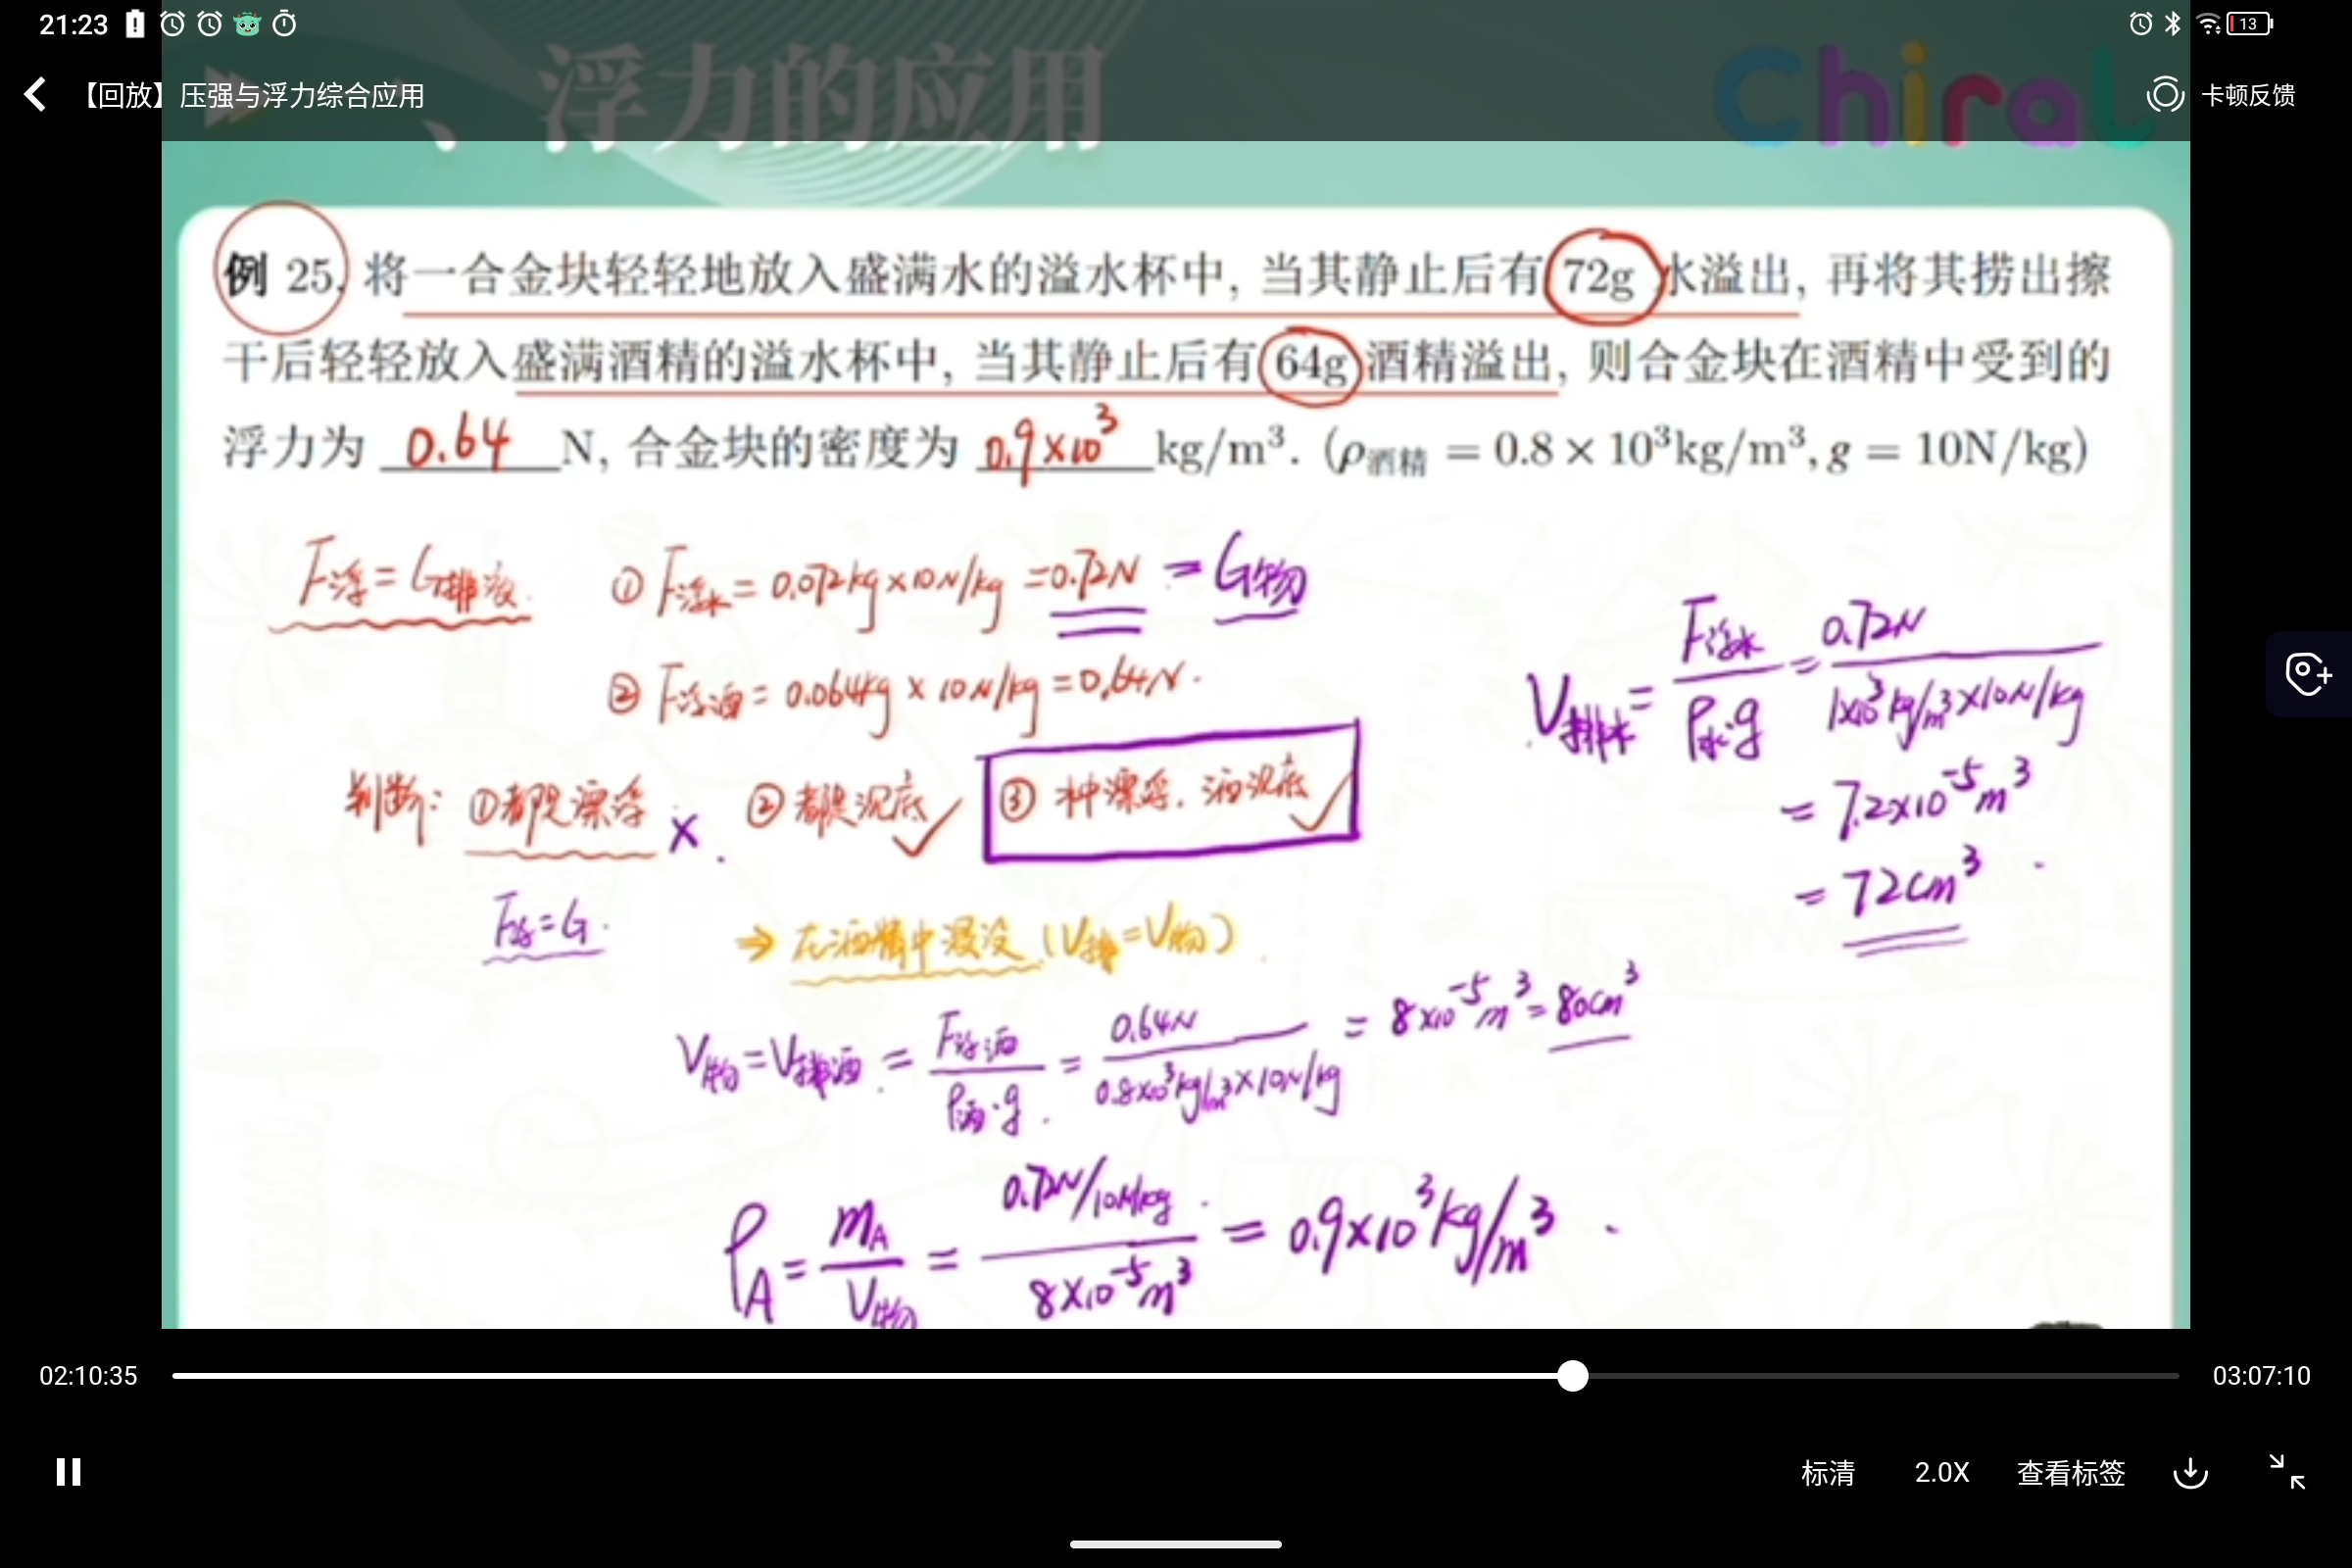 21:23
13
【回放】压强与浮力综合应用
卡顿反馈
、浮力的应用
Chiral
例 25. 将一合金块轻轻地放入盛满水的溢水杯中, 当其静止后有 72g 水溢出, 再将其捞出擦
干后轻轻放入盛满酒精的溢水杯中, 当其静止后有 64g 酒精溢出, 则合金块在酒精中受到的
浮力为 0.64 N, 合金块的密度为 0.9×10³ kg/m³. (ρ酒精 = 0.8 × 10³kg/m³, g = 10N/kg)
F浮=G排液. ① F浮水=0.072kg×10N/kg=0.72N = G物
② F浮酒=0.064kg×10N/kg=0.64N.
V排水=F浮水/ρ水·g=0.72N/1×10³kg/m³×10N/kg
=7.2×10⁻⁵m³
=72cm³
判断: ①都是漂浮 × ②都是沉底✓ ③水中漂浮. 酒沉底✓
F浮=G.
⇒ 在酒精中浸没 (V排=V物)
V物=V排酒=F浮酒/ρ酒·g=0.64N/0.8×10³kg/m³×10N/kg=8×10⁻⁵m³=80cm³
ρA=mA/V物=0.72N/10N/kg/8×10⁻⁵m³=0.9×10³kg/m³
02:10:35
03:07:10
标清
2.0X
查看标签